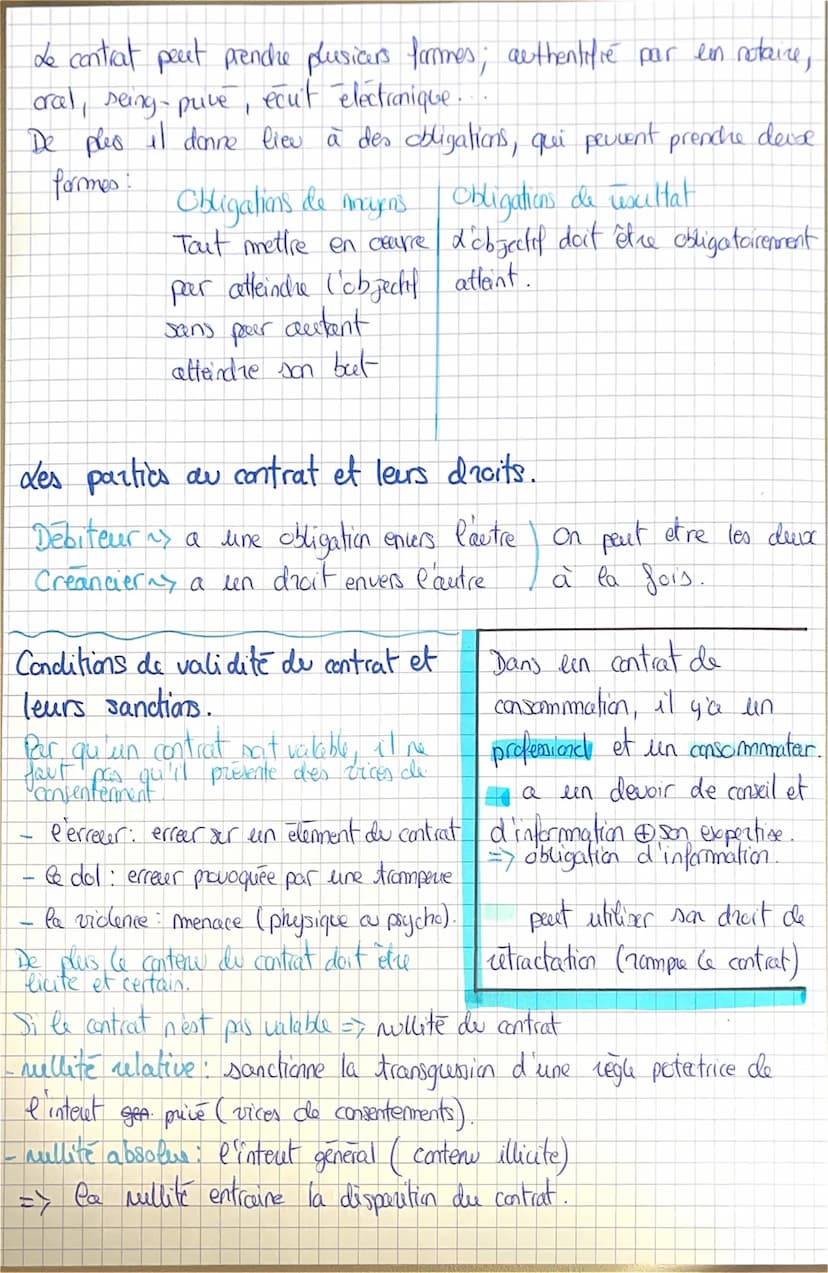 Le contrat peut prendre plusieurs formes; authentifié par un notaire,
oral, seing-privé, écrit électronique...
De plus il donne lieu à des obligations, qui peuvent prendre deux
formes:
Obligations de moyens
Tout mettre en œuvre
pour atteindre l'objectif
sans pour autant
atteindre son but
Obligations de résultat
L'objectif doit être obligatoirement
atteint.
Les parties au contrat et leurs droits.
Débiteur ~> a une obligation envers l'autre
Créancier ~> a un droit envers l'autre
On peut etre les deux
à la fois.
Conditions de validité du contrat et
leurs sanctions.
Pour qu'un contrat soit valable, il ne
faut pas qu'il présente des vices de
consentement
- l'erreur: erreur sur un élément du contrat
- le dol: erreur provoquée par une tromperie
- la violence: menace (physique ou psycho).
De plus le contenu du contrat doit être
licite et certain.
Dans un contrat de
consommation, il y'a un
professionel et un consommateur.
a un devoir de conseil et
d'information ⊕ son expertise.
=> obligation d'information.
peut utiliser son droit de
rétractation (rompre le contrat)
Si le contrat n'est pas valable => nullité du contrat
- nullité relative: sanctionne la transgression d'une règle potectrice de
l'interet privé (vices de consentements).
- nullité absolue: l'interet général (contenu illicite)
=> la nullité entraine la disparition du contrat.